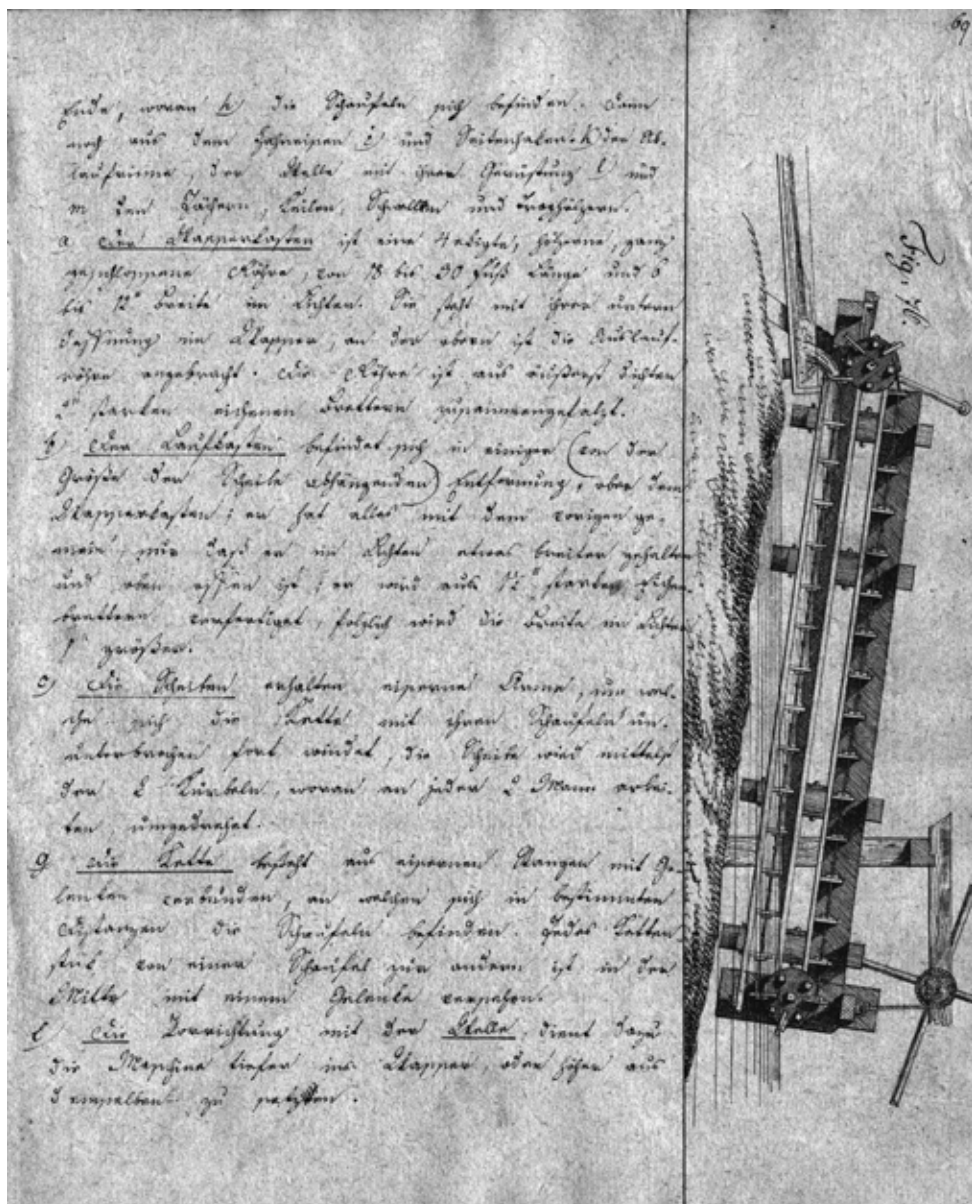 69
Ende, woran h die Schaufeln sich befinden. Dann
noch aus dem Zahneisen i und Seitenhaken k der Ab-
laufrinne, der Welle mit ihrer Gerüstung l und
m den Löchern, Keilen, Schwellen und
a Der Wasserkasten ist eine 4 ekigte, hölzerne, ganz
geschlossene Röhre, von 18 bis 30 Fuß Länge und 6
bis 12" Breite im Lichten. Sie steht mit ihrer untern
Oeffnung im Wasser, an der obern ist die Auslauf-
röhre angebracht. Die Röhre ist aus äußerst dichten
2" starken eichenen Brettern zusammengefalzt.
b) Der Laufkasten befindet sich in einiger (von der
Größe der Scheibe abhängenden) Entfernung, ober dem
Wasserkasten; er hat alles mit dem vorigen ge-
mein, nur daß er im Lichten etwas breiter gehalten
und oben offen ist; er wird aus 1½" starken
brettern verfertiget, folglich wird die Breite im Lichten
1" größer.
c) Die Scheiben erhalten eiserne Arme, um wel-
che sich die Kette mit ihren Schaufeln un-
unterbrochen fort windet, die Scheibe wird mittelst
der 2 Kurbeln, woran an jeder 2 Mann arbei-
ten, umgedrehet.
g Die Kette besteht aus eisernen Stangen mit Ge-
lenken verbunden, an welchen sich in bestimmten
Distanzen die Schaufeln befinden. Jedes Ketten
stük von einer Schaufel zur andern ist in der
Mitte mit einem Gelenke versehen.
l) Die Vorrichtung mit der Welle, dient dazu
die Maschine tiefer ins Wasser, oder höher aus
demselben zu setzen.
Fig. 76.